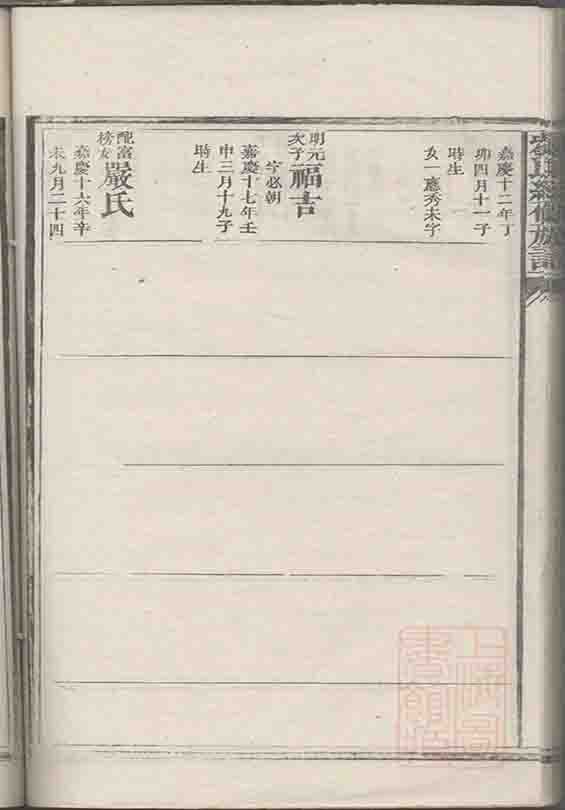 嘉慶十二年丁
卯四月十一子
時生
女一應秀未字
明元
次子
福吉
字必朝
嘉慶十七年壬
申三月十九子
時生
配富
榜女
嚴氏
嘉慶十六年辛
未九月二十四